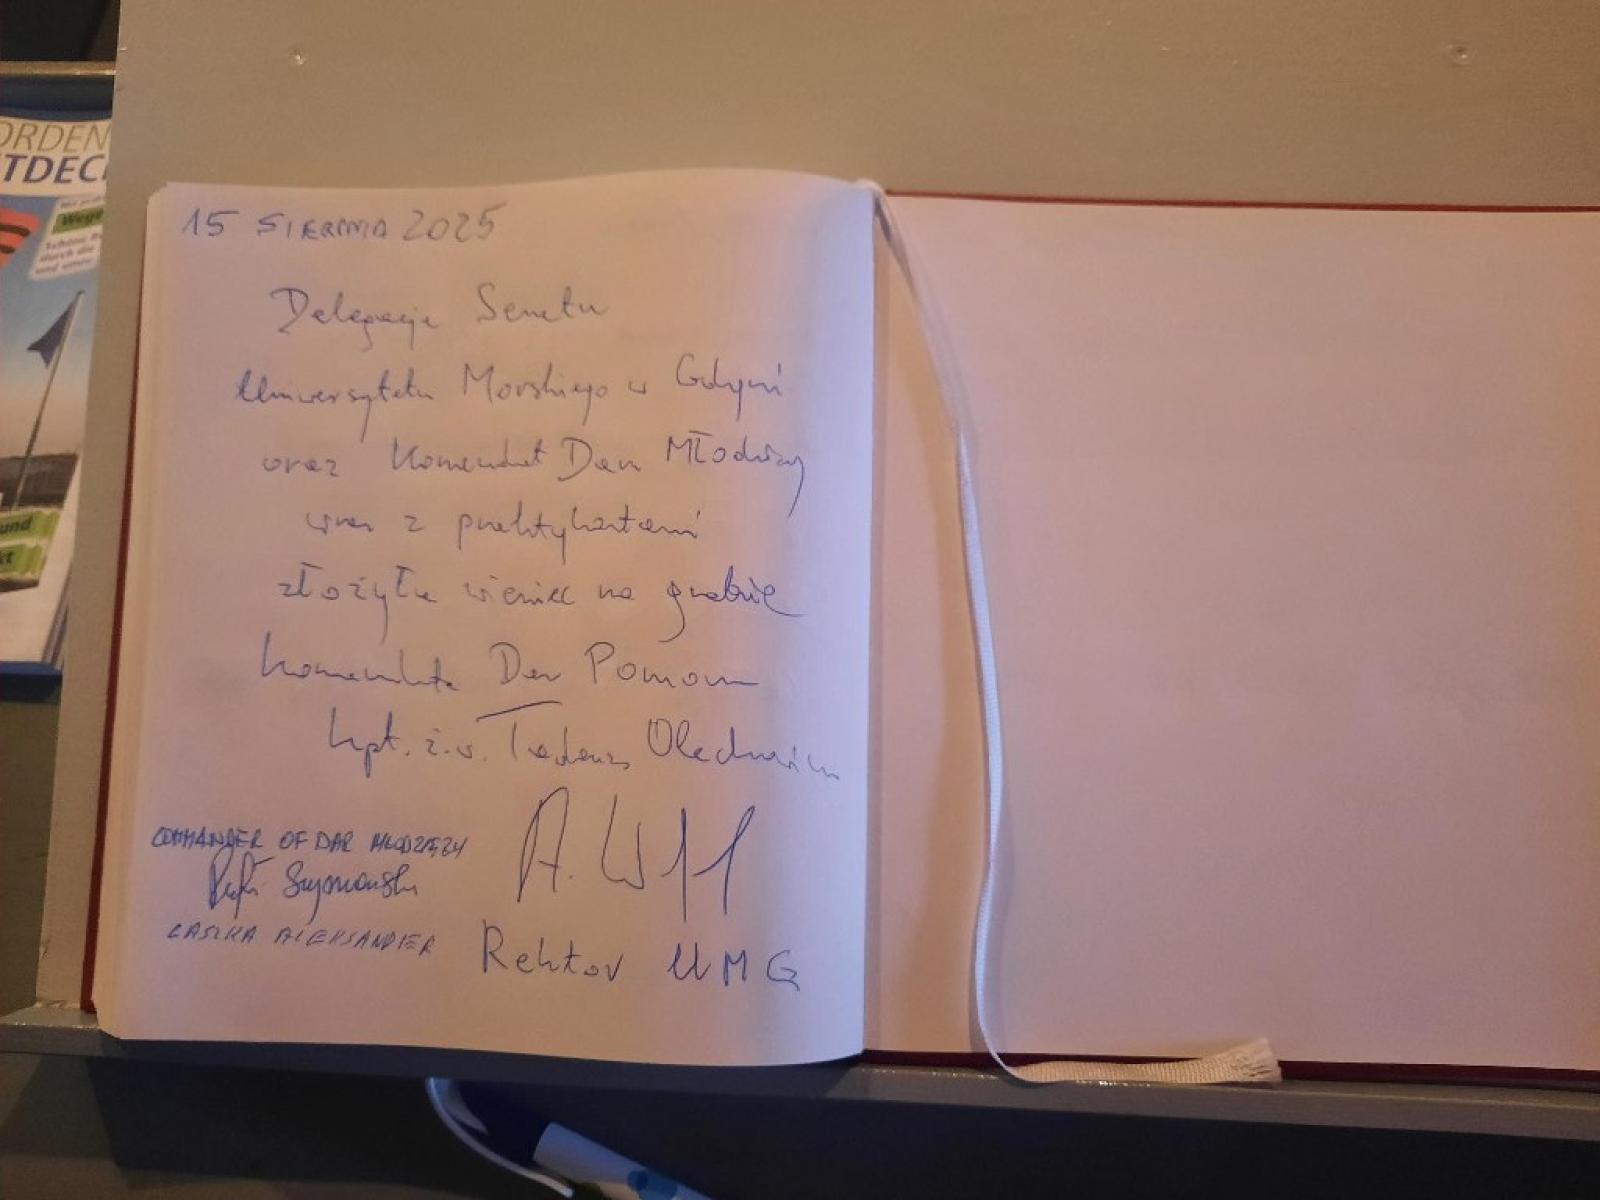 ORDEN
TDEC
Wege
und
kt
15 SIERPNIA 2025
Delegacja Senatu
Uniwersytetu Morskiego w Gdyni
oraz Komendant Daru Młodzieży
wraz z praktykantami
złożyła wieniec na grobie
Komendanta Daru Pomorza
kpt. ż.w. Tadeusza Olechnowicza
COMMANDER OF DAR MŁODZIEŻY
LASKA ALEKSANDER
Rektor UMG